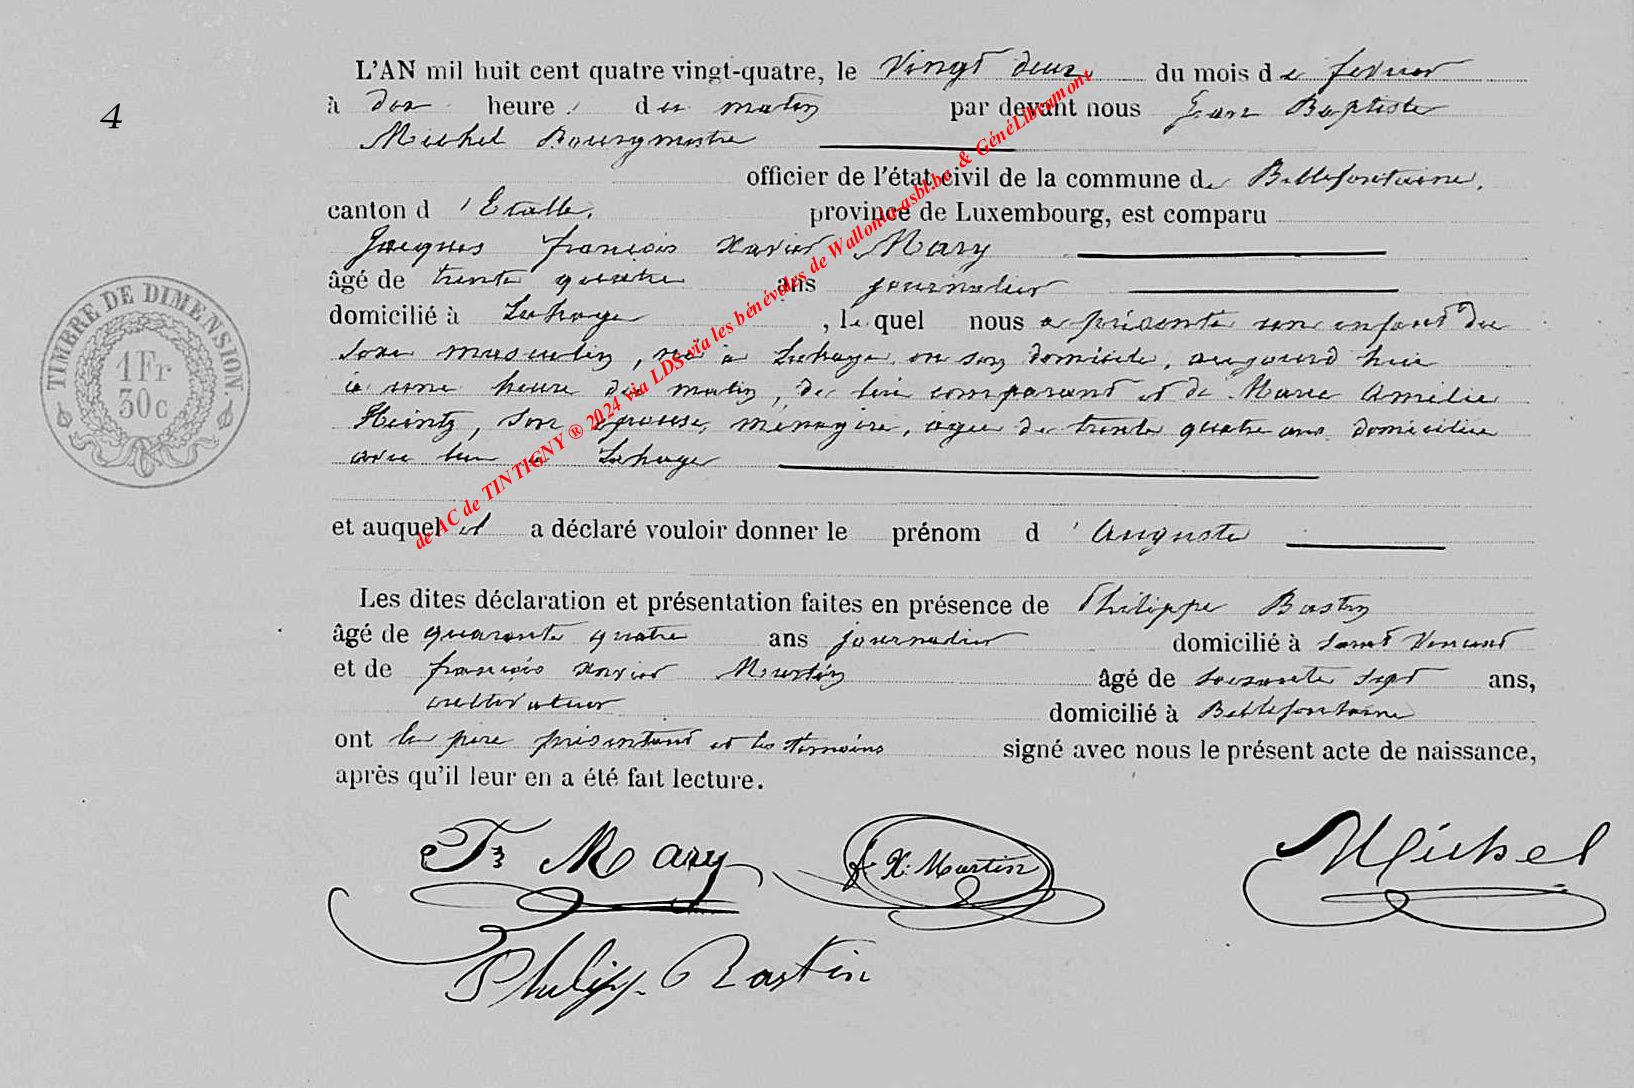 4
L'AN mil huit cent quatre vingt-quatre, le vingt deux du mois de fevrier
à dix heure du matin par devant nous Jean Baptiste
Michel Bourgmestre
officier de l'état civil de la commune de Bellefontaine,
canton d'Etalle, province de Luxembourg, est comparu
Jacques françois Xavier Mary
âgé de trente quatre ans journalier
domicilié à Lahage, lequel nous a présenté un enfant du
sexe masculin, né à Lahage en son domicile, aujourd'hui
à une heure du matin, de lui comparant et de Marie Amélie
Heintz, son épouse, ménagère, agée de trente quatre ans domiciliée
avec lui à Lahage
et auquel il a déclaré vouloir donner le prénom d'Auguste
Les dites déclaration et présentation faites en présence de Philippe Bastin
âgé de quarante quatre ans journalier domicilié à Saint Vincent
et de françois Xavier Martin âgé de soixante sept ans,
cultivateur domicilié à Bellefontaine
ont le père présentant et les témoins signé avec nous le présent acte de naissance,
après qu'il leur en a été fait lecture.
Mary
f. X. Martin
Michel
Philipp. Bastin
TIMBRE DE DIMENSION.
1 Fr
30 c
de AC de TINTIGNY ® 2024 via LDS via les bénévoles de Wallonia-asbl.be & GénéLibramont